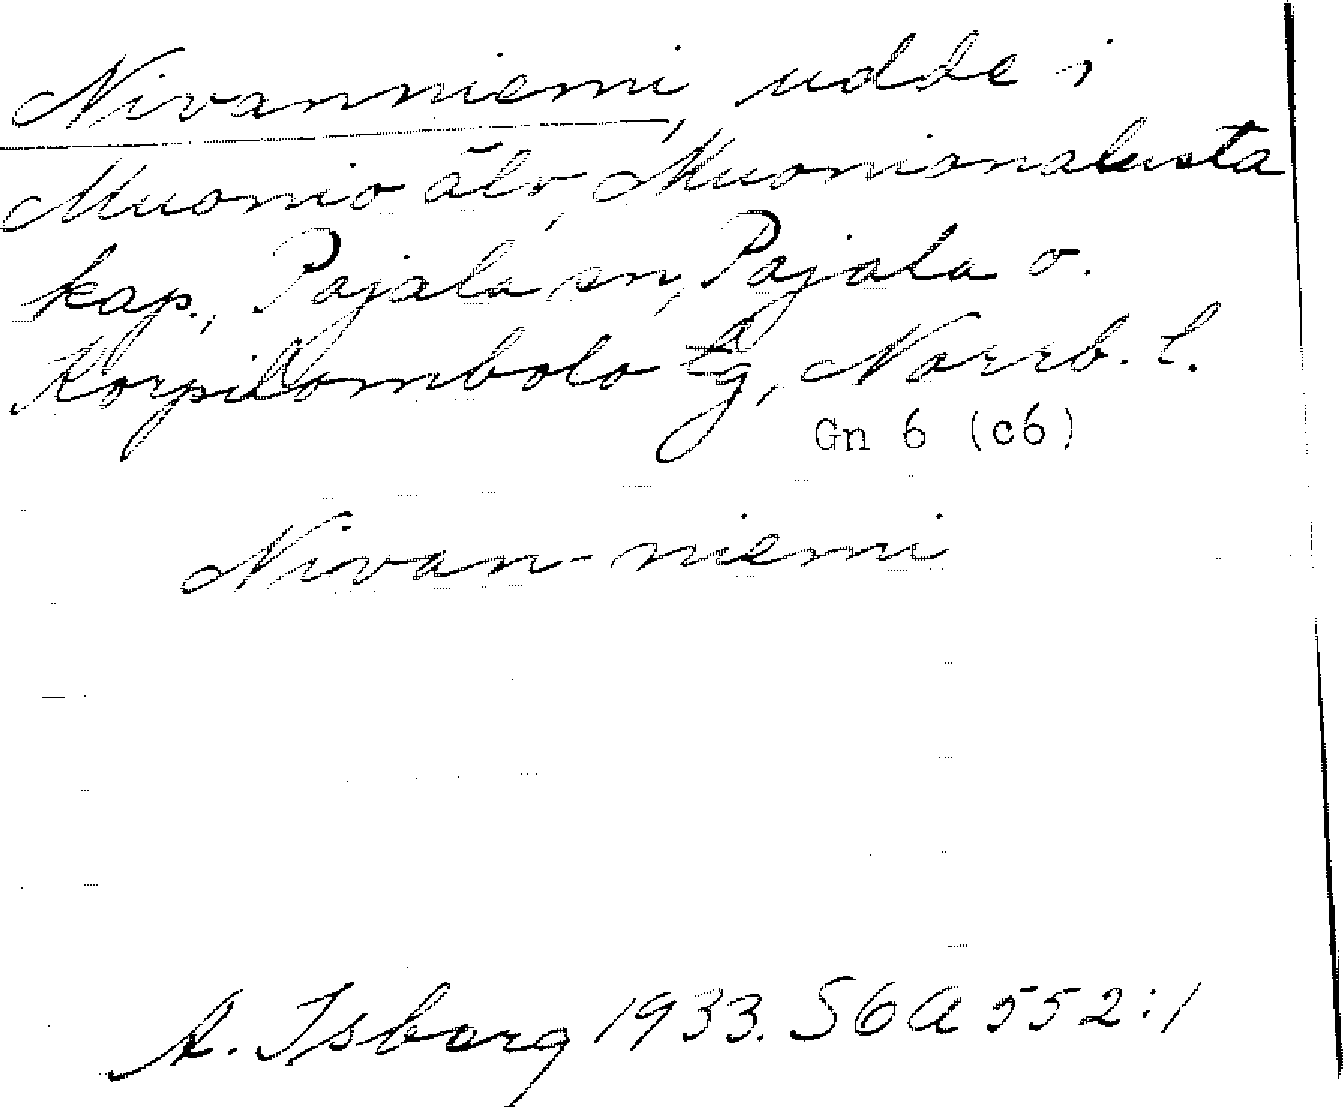 Nivanniemi, udde i
Muonio älv, Muonionalusta
kap., Pajala sn, Pajala o.
Korpilombolo tg, Norrb. l.
Gn 6 (c6)
Nivan-niemi
A. Isberg 1933. S6A 552:1